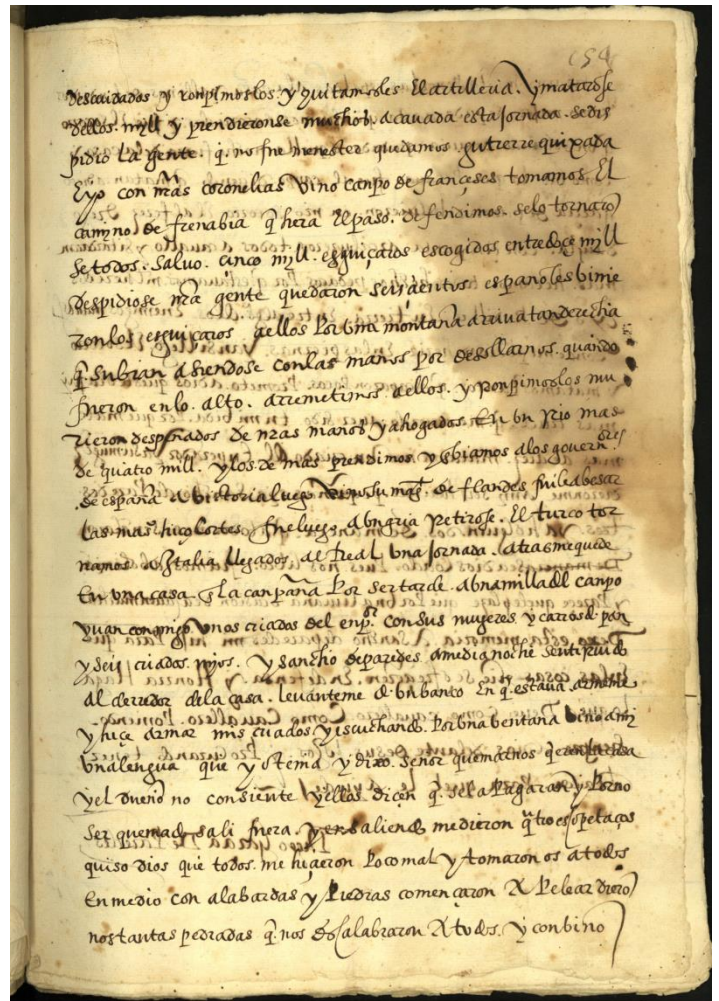 descuidados y ronpimoslos y quitamosles El artilleria. y mataronse
dellos. mill y prendieronse muchos. acavada esta Jornada. se des
pidio La gente. q. no fue menester quedamos. gutierre quixada
E yo con nras coronelias vino canpo de françeses tomamos. El
camino de frenabia q hera El paso. defendimos. selo tornaro
se todos. Salvo. cinco mill. esguiçaros escogidos entre doçe mill
despidiose nra gente quedaron seisçientos españoles binie
ron los esguiçaros a ellos Por una montaña arriva tan derecha
q. subian asiendose con las manos por desollarnos. quando
fueron en lo. alto. arremetimos a ellos. y ronpimoslos mu
rieron despeñados de nras manos y ahogados En un rio mas
de quatro mill. y los de mas prendimos y enbiamos a los governores
de españa a victoria luego vino su magt. de flandes fuile a besar
las manos. hiço Cortes. fue luego a ungria Retirose. El turco tor
namos a Italia llegados. al Real una Jornada. atras me quede
En una casa. En la canpaña Por ser tarde. a una milla del canpo
yvan conmigo unos criados del enpor. con sus mujeres y carros de pan
y seis criados mios. y sancho de paredes a media noche senti ruido
al derredor de la casa. levanteme de un banco En q. estava. armeme
y hiçe armar mis criados y escuchando. Por una ventana vino a mi
una lengua que yo tenia y dixo. señor quemarnos quieren la casa
y el dueño no consiente y ellos diçen q. se la Pagaran y Por no
ser quemado sali fuera. y en saliendo me dieron quatro escopetaços
quiso dios que todos. me hiçieron Poco mal y tomaronos a todos
En medio con alabardas y Piedras començaron A Pelear dieron
nos tantas pedradas q. nos descalabraron A todos. y conbino